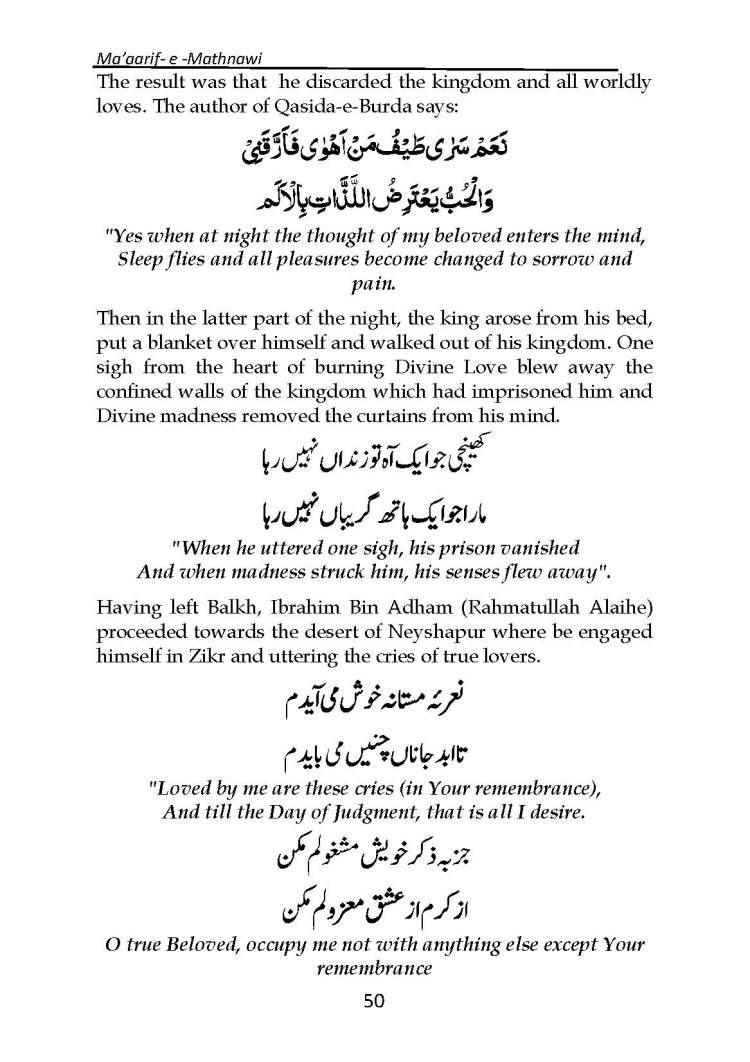 Ma'aarif- e -Mathnawi
The result was that he discarded the kingdom and all worldly
loves. The author of Qasida-e-Burda says:
نَعَمْ سَرٰى طَيْفُ مَنْ اَهْوٰى فَاَرَّقَنِيْ
وَالْحُبُّ يَعْتَرِضُ اللَّذَّاتِ بِالْاَلَمِ
"Yes when at night the thought of my beloved enters the mind,
Sleep flies and all pleasures become changed to sorrow and
pain.
Then in the latter part of the night, the king arose from his bed,
put a blanket over himself and walked out of his kingdom. One
sigh from the heart of burning Divine Love blew away the
confined walls of the kingdom which had imprisoned him and
Divine madness removed the curtains from his mind.
کھینچی جو ایک آہ تو زنداں نہیں رہا
مارا جو ایک ہاتھ گریباں نہیں رہا
"When he uttered one sigh, his prison vanished
And when madness struck him, his senses flew away".
Having left Balkh, Ibrahim Bin Adham (Rahmatullah Alaihe)
proceeded towards the desert of Neyshapur where be engaged
himself in Zikr and uttering the cries of true lovers.
نعرئہ مستانہ خوش می آیدم
تا ابد جاناں چنیں می بایدم
"Loved by me are these cries (in Your remembrance),
And till the Day of Judgment, that is all I desire.
جز بہ ذکر خویش مشغولم مکن
از کرم از عشق معزولم مکن
O true Beloved, occupy me not with anything else except Your
remembrance
50